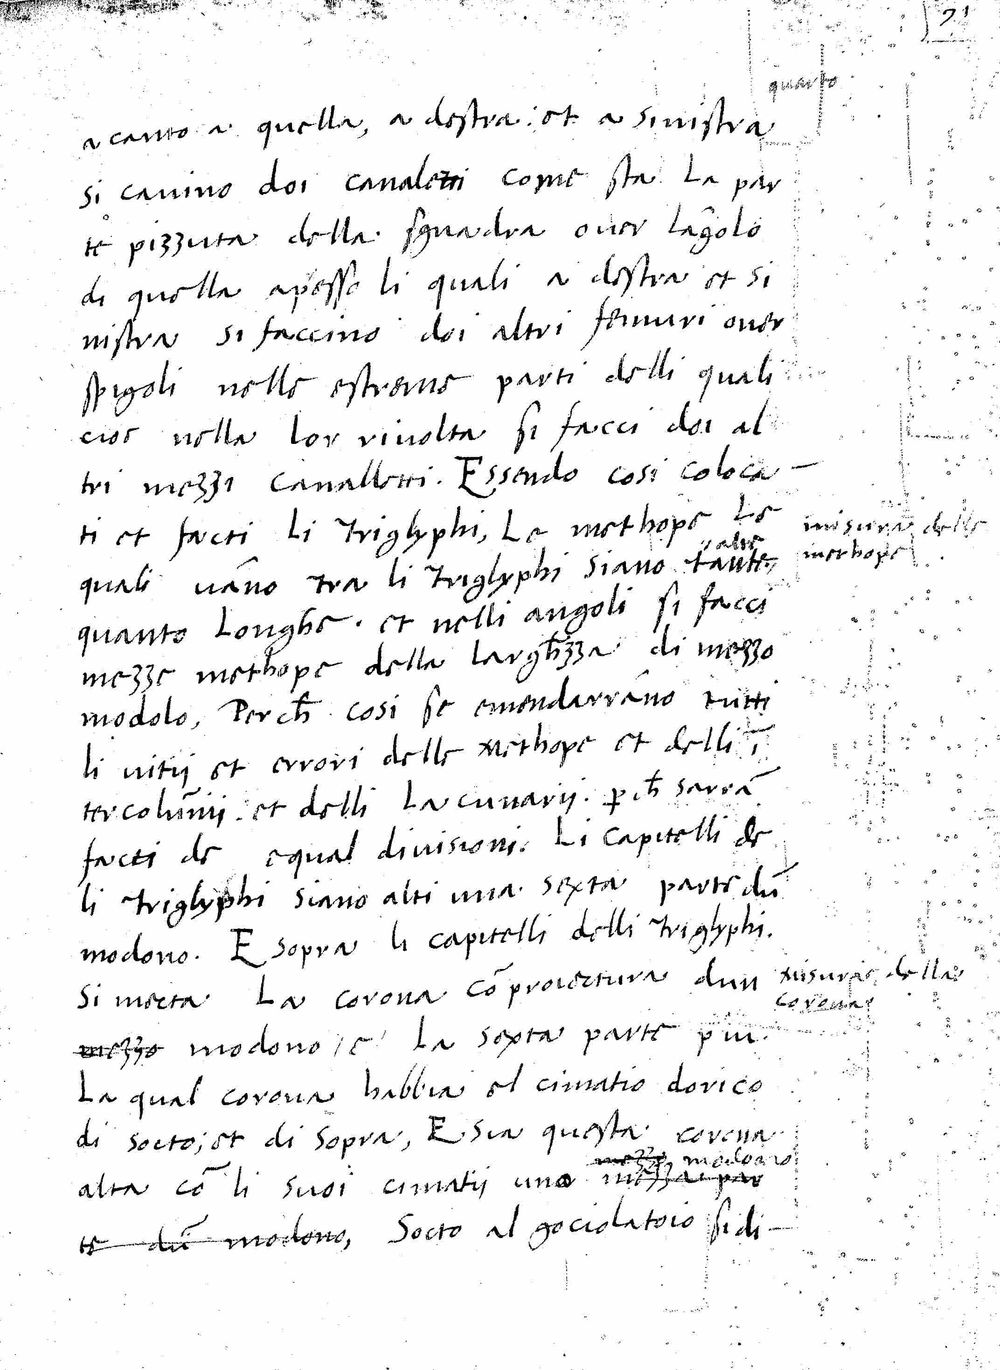 71
quarto
a canto a quella, a destra: et a sinistra
si cavino doi canaletti come sta La par
te pizzuta della squadra over l'ãgolo
di quella apesso li quali a destra et si
nistra si faccino doi altri femuri over
spigoli nelle estreme parti delli quali
cioe nella lor rivolta si facci doi al
tri mezzi canalletti. Essendo cosi coloca-
ti et facti li triglyphi, Le methope Le
misura delle
methope
alte
quali vãno tra li triglyphi siano tante,
quanto Longhe. et nelli angoli si facci
mezze methope della Largh̃zza di mezzo
modolo, Perch̃ cosi se emendarrãno tutti
li vitij et errori delle methope et delli ĩ
tercolũnij. et delli Lacunarij. p ch̃ sarrã
facti de equal divisioni. Li capitelli de
li triglyphi siano alti una sexta parte dũ
modono. E sopra li capitelli delli triglyphi.
si mecta La corona cõ proiectura dun
misura della
corona
mezzo modono / e La sexta parte piu.
La qual corona habbia el cimatio dorico
di socto; et di sopra, E sia questa corona
mezzo modono
alta cõ li suoi cimatij uno mezza par
te dũ modono, Socto al gociolatoio si di-